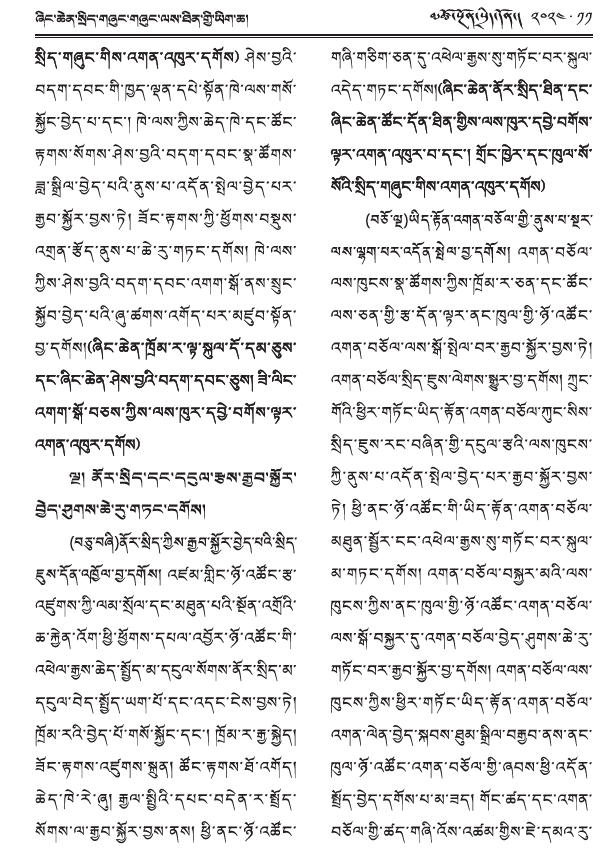 ཞིང་ཆེན་སྲིད་གཞུང་གཞུང་ལས་ཐིན་གྱི་ཡིག་ཆ།
༢༠༢༤ · ༡༡
སྲིད་གཞུང་གིས་འགན་འཁུར་དགོས) ཤེས་བྱའི་
བདག་དབང་གི་ཁྱད་ལྡན་དཔེ་སྟོན་ཁེ་ལས་གསོ་
སྐྱོང་བྱེད་པ་དང་། ཁེ་ལས་ཀྱིས་ཆེད་ཁེ་དང་ཚོང་
རྟགས་སོགས་ཤེས་བྱའི་བདག་དབང་སྣ་ཚོགས་
ཟླ་སྒྲིལ་བྱེད་པའི་ནུས་པ་འདོན་སྤེལ་བྱེད་པར་
རྒྱབ་སྐྱོར་བྱས་ཏེ། ཟོང་རྟགས་ཀྱི་ཕྱོགས་བསྡུས་
འགྲན་རྩོད་ནུས་པ་ཆེ་རུ་གཏང་དགོས། ཁེ་ལས་
ཀྱིས་ཤེས་བྱའི་བདག་དབང་འགག་སྒོ་ནས་སྲུང་
སྐྱོབ་བྱེད་པའི་ཞུ་ཚགས་འགོད་པར་མཛུབ་སྟོན་
བྱ་དགོས།(ཞིང་ཆེན་ཁྲོམ་ར་ལྟ་སྐུལ་དོ་དམ་ཅུས་
དང་ཞིང་ཆེན་ཤེས་བྱའི་བདག་དབང་ཅུས། ཟི་ལིང་
འགག་སྒོ་བཅས་ཀྱིས་ལས་ཁུར་དབྱེ་བགོས་ལྟར་
འགན་འཁུར་དགོས)
ལྔ། ནོར་སྲིད་དང་དངུལ་རྩས་རྒྱབ་སྐྱོར་
བྱེད་ཤུགས་ཆེ་རུ་གཏང་དགོས།
(བཅུ་བཞི)ནོར་སྲིད་ཀྱིས་རྒྱབ་སྐྱོར་བྱེད་པའི་སྲིད་
ཇུས་དོན་འཁྱོལ་བྱ་དགོས། འཛམ་གླིང་ཉོ་འཚོང་རྩ་
འཛུགས་ཀྱི་ལམ་སྲོལ་དང་མཐུན་པའི་སྔོན་འགྲོའི་
ཆ་རྐྱེན་འོག་ཕྱི་ཕྱོགས་དཔལ་འབྱོར་ཉོ་འཚོང་གི་
འཕེལ་རྒྱས་ཆེད་སྤྱོད་མ་དངུལ་སོགས་ནོར་སྲིད་མ་
དངུལ་བེད་སྤྱོད་ཡག་པོ་དང་འདང་ངེས་བྱས་ཏེ།
ཁྲོམ་རའི་བྱེད་པོ་གསོ་སྐྱོང་དང་། ཁྲོམ་ར་རྒྱ་སྐྱེད།
ཟོང་རྟགས་འཛུགས་སྐྲུན། ཚོང་རྟགས་ཐོ་འགོད།
ཆེད་ཁེ་རེ་ཞུ། རྒྱལ་སྤྱིའི་དཔང་བདེན་ར་སྤྲོད་
སོགས་ལ་རྒྱབ་སྐྱོར་བྱས་ནས། ཕྱི་ནང་ཉོ་འཚོང་
གཞི་གཅིག་ཅན་དུ་འཕེལ་རྒྱས་སུ་གཏོང་བར་སྐུལ་
འདེད་གཏང་དགོས།(ཞིང་ཆེན་ནོར་སྲིད་ཐིན་དང་
ཞིང་ཆེན་ཚོང་དོན་ཐིན་གྱིས་ལས་ཁུར་དབྱེ་བགོས་
ལྟར་འགན་འཁུར་བ་དང་། གྲོང་ཁྱེར་དང་ཁུལ་སོ་
སོའི་སྲིད་གཞུང་གིས་འགན་འཁུར་དགོས)
(བཅོ་ལྔ)ཡིད་རྟོན་འགན་བཅོལ་གྱི་ནུས་པ་སྔར་
ལས་ལྷག་པར་འདོན་སྤེལ་བྱ་དགོས། འགན་བཅོལ་
ལས་ཁུངས་སྣ་ཚོགས་ཀྱིས་ཁྲོམ་ར་ཅན་དང་ཚོང་
ལས་ཅན་གྱི་རྩ་དོན་ལྟར་ནང་ཁུལ་གྱི་ཉོ་འཚོང་
འགན་བཅོལ་ལས་སྒོ་སྤེལ་བར་རྒྱབ་སྐྱོར་བྱས་ཏེ།
འགན་བཅོལ་སྲིད་ཇུས་ལེགས་སྒྱུར་བྱ་དགོས། ཀྲུང་
གོའི་ཕྱིར་གཏོང་ཡིད་རྟོན་འགན་བཅོལ་ཀུང་སིས་
སྲིད་ཇུས་རང་བཞིན་གྱི་དངུལ་རྩའི་ལས་ཁུངས་
ཀྱི་ནུས་པ་འདོན་སྤེལ་བྱེད་པར་རྒྱབ་སྐྱོར་བྱས་
ཏེ། ཕྱི་ནང་ཉོ་འཚོང་གི་ཡིད་རྟོན་འགན་བཅོལ་
མཐུན་སྦྱོར་ངང་འཕེལ་རྒྱས་སུ་གཏོང་བར་སྐུལ་
མ་གཏང་དགོས། འགན་བཅོལ་བསྐྱར་མའི་ལས་
ཁུངས་ཀྱིས་ནང་ཁུལ་གྱི་ཉོ་འཚོང་འགན་བཅོལ་
ལས་སྒོ་བསྐྱར་དུ་འགན་བཅོལ་བྱེད་ཤུགས་ཆེ་རུ་
གཏོང་བར་རྒྱབ་སྐྱོར་བྱ་དགོས། འགན་བཅོལ་ལས་
ཁུངས་ཀྱིས་ཕྱིར་གཏོང་ཡིད་རྟོན་འགན་བཅོལ་
འགན་ལེན་བྱེད་སྐབས་ཐུམ་སྒྲིལ་བརྒྱབ་ནས་ནང་
ཁུལ་ཉོ་འཚོང་འགན་བཅོལ་གྱི་ཞབས་ཕྱི་འདོན་
སྤྲོད་བྱེད་དགོས་པ་མ་ཟད། གོང་ཚད་དང་འགན་
བཅོལ་གྱི་ཚད་གཞི་འོས་འཚམ་གྱིས་ཇེ་དམའ་རུ་